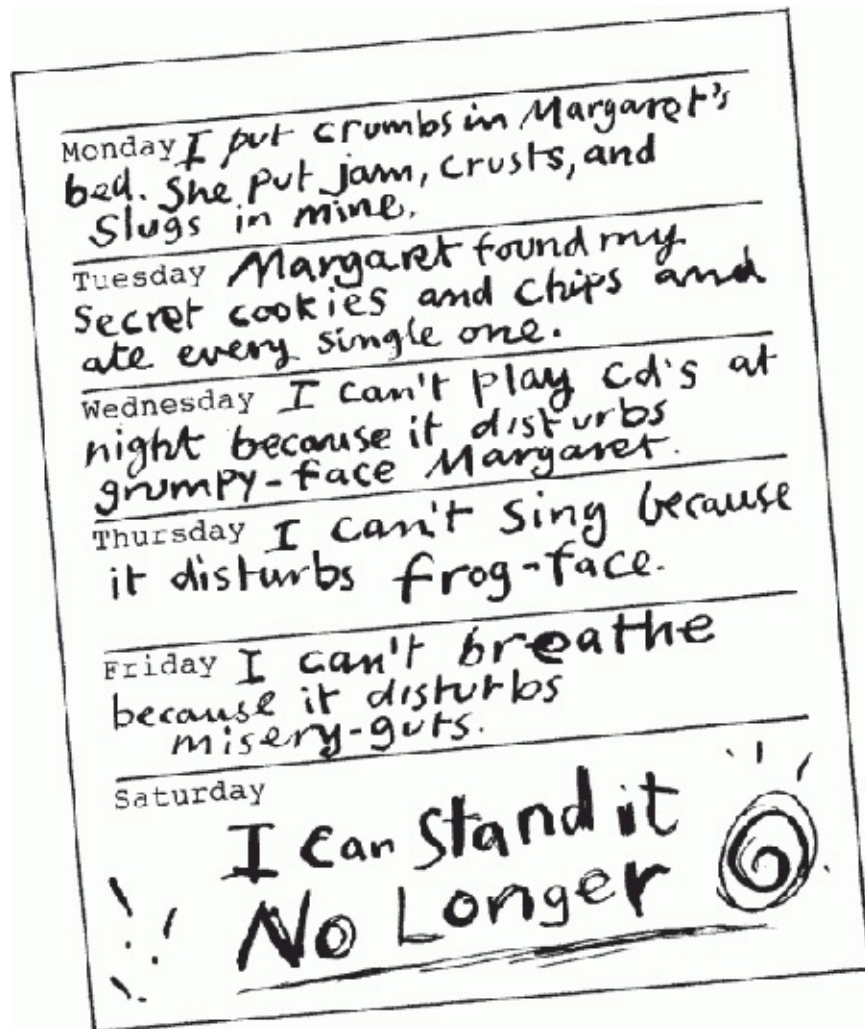 Monday I put crumbs in Margaret's
bed. She put jam, crusts, and
slugs in mine.
Tuesday Margaret found my
secret cookies and chips and
ate every single one.
Wednesday I can't play cd's at
night because it disturbs
grumpy-face Margaret.
Thursday I can't sing because
it disturbs frog-face.
Friday I can't breathe
because it disturbs
misery-guts.
Saturday
I can stand it
No Longer